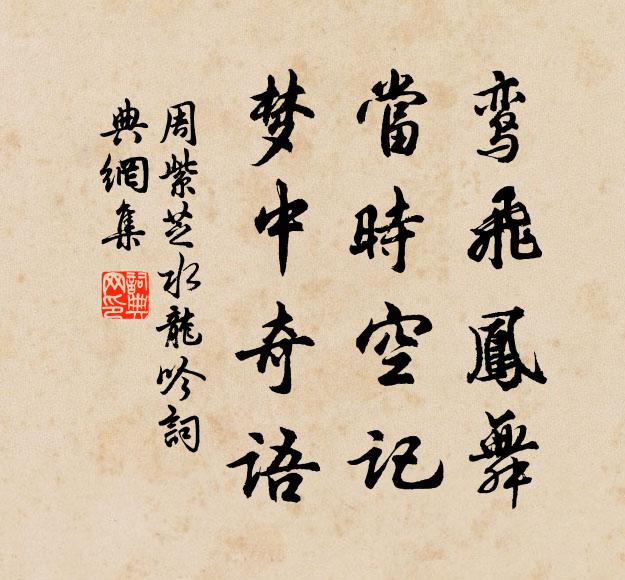 鸾飛鳳舞
當時空记
梦中奇语
周紫芝水龍吟詞
典網集
詞典网印